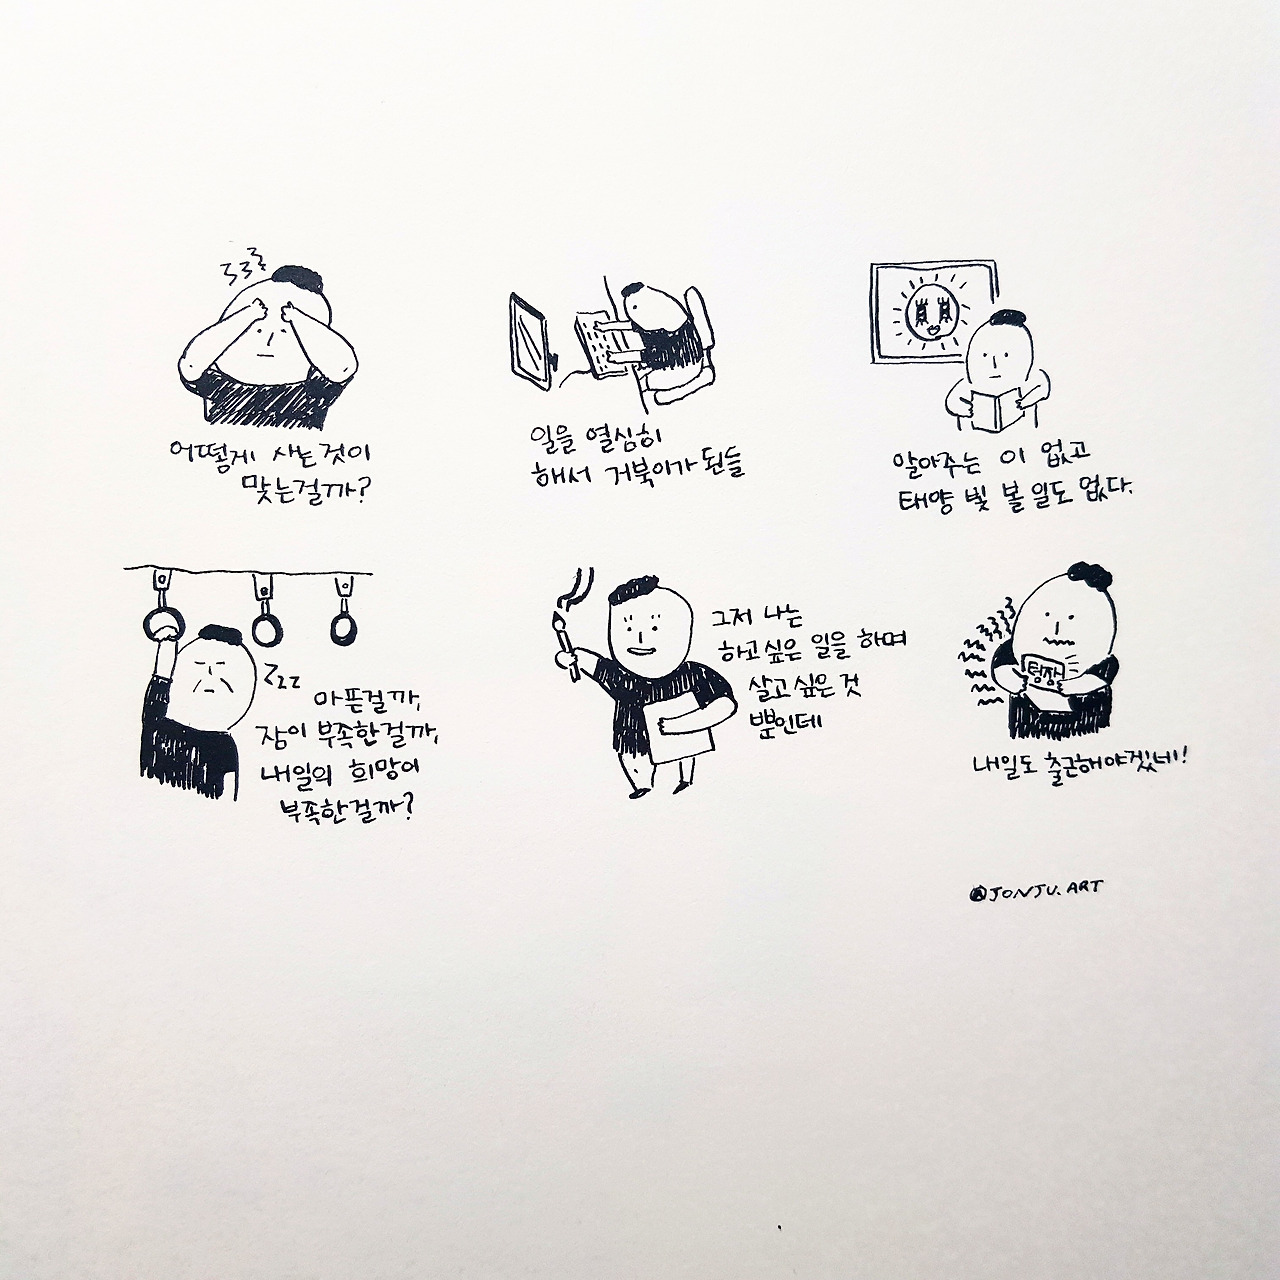 어떻게 사는것이
맞는걸까?
일을 열심히
해서 거북이가 된들
알아주는 이 없고
태양 빛 볼 일도 없다.
Zzz
아픈걸까,
잠이 부족한걸까,
내일의 희망이
부족한걸까?
그저 나는
하고싶은 일을 하며
살고싶은 것
뿐인데
텅장
내일도 출근해야겠네!
@JONJU.ART